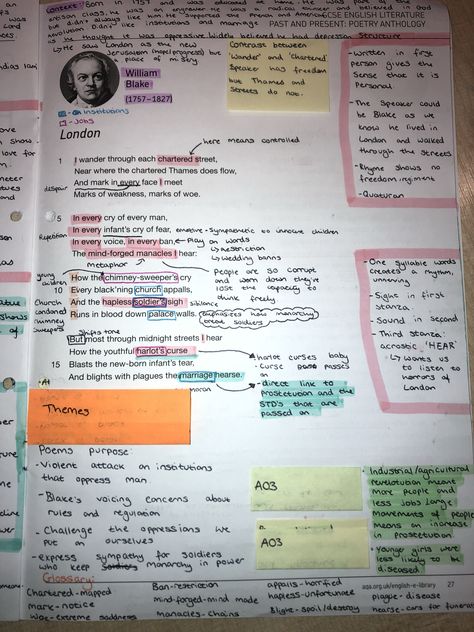 Context: Born in 1757 and was educated at home. He was part of the
GCSE ENGLISH LITERATURE
PAST AND PRESENT: POETRY ANTHOLOGY
He saw London as the new
Jerusalem (hope/progress) but
a place of misery.
Structure
William
Blake
(1757–1827)
- Institutions
- Jobs
Contrast between
'wander' and 'chartered'
Speaker has freedom
but Thames and
Streets do not.
- Written in first
person gives the
sense that it is
Personal
- The Speaker could
be Blake as we
know he lived in
London and walked
through the streets
- Rhyme shows no
freedom, regiment
- Quatrain
London
here means controlled
1 I wander through each chartered street,
Near where the chartered Thames does flow,
And mark in every face I meet
despair
Marks of weakness, marks of woe.
5 In every cry of every man,
Repetition
In every infant's cry of fear,
emotive - Sympathetic to innocent children
In every voice, in every ban,
Play on words
restriction
wedding banns
The mind-forged manacles I hear:
metaphor
People are so corrupt
and worn down they've
lose the capacity to
think freely
young children
How the chimney-sweeper's cry
10 Every black'ning church appalls,
Church condoned
Chimney
Sweepers
And the hapless soldier's sigh
Sibilance
Runs in blood down palace walls.
emphasizes how monarchy
treat soldiers
- One Syllable words
creates a rhythm,
unnerving
- Sight in first
Stanza
- Sound in second
- Third stanza:
acrostic 'HEAR'
wants us
to listen to
horrors of
London
Shifts tone
But most through midnight streets I hear
How the youthful harlot's curse
- harlot curses baby
- Curse passes
on
15 Blasts the new-born infant's tear,
And blights with plagues the marriage hearse.
- direct link to
prostetution and the
STD's that are
passed on
Themes
Poems purpose:
- Violent attack on institutions
that oppress man.
- Blake's voicing concerns about
rules and regulation
- Challenge the oppressions we
put on ourselves
- express sympathy for soldiers
who keep monarchy in power
AO3
AO3
- Industrial/agricultural
revolution meant
more people and
less jobs. Large
movements of people
means an increase
in prostetution
- Younger girls were
less likely to be
diseased
Glossary:
Chartered - mapped
mark - notice
woe - extreme sadness
Ban - restriction
mind-forged - mind made
manacles - chains
appalls - horrified
hapless - unfortunate
Blight - spoil/destroy
plague - disease
hearse - cars for funerals
aqa.org.uk/english-e-library 27